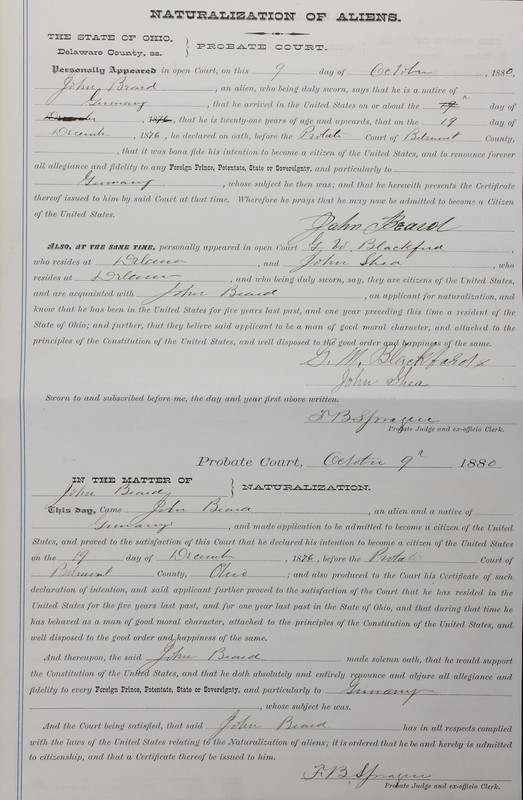 NATURALIZATION OF ALIENS.
THE STATE OF OHIO,
Delaware County, ss.
PROBATE COURT.
Personally Appeared in open Court, on this 9 day of October, 1880,
John Beard, an alien, who being duly sworn, says that he is a native of
Germany, that he arrived in the United States on or about the 19 day of
December, 1876, that he is twenty-one years of age and upwards, that on the 19 day of
December, 1876, he declared on oath, before the Probate Court of Belmont County,
, that it was bona fide his intention to become a citizen of the United States, and to renounce forever
all allegiance and fidelity to any Foreign Prince, Potentate, State or Sovereignty, and particularly to
Germany, whose subject he then was; and that he herewith presents the Certificate
thereof issued to him by said Court at that time. Wherefore he prays that he may now be admitted to become a Citizen
of the United States.
John Beard
ALSO, AT THE SAME TIME, personally appeared in open Court G. W. Blackford,
who resides at Delaware, and John Shea, who
resides at Delaware, and who being duly sworn, say, they are citizens of the United States,
and are acquainted with John Beard, an applicant for naturalization, and
know that he has been in the United States for five years last past, and one year preceding this time a resident of the
State of Ohio; and further, that they believe said applicant to be a man of good moral character, and attached to the
principles of the Constitution of the United States, and well disposed to the good order and happiness of the same.
G. W. Blackford
John Shea
Sworn to and subscribed before me, the day and year first above written.
F B Sprague
Probate Judge and ex-officio Clerk.
Probate Court, October 9th 1880
IN THE MATTER OF
John Beard
NATURALIZATION.
This day, Came John Beard, an alien and a native of
Germany, and made application to be admitted to become a citizen of the United
States, and proved to the satisfaction of this Court that he declared his intention to become a citizen of the United States
on the 19 day of December, 1876, before the Probate Court of
Belmont County, Ohio; and also produced to the Court his Certificate of such
declaration of intention, and said applicant further proved to the satisfaction of the Court that he has resided in the
United States for the five years last past, and for one year last past in the State of Ohio, and that during that time he
has behaved as a man of good moral character, attached to the principles of the Constitution of the United States, and
well disposed to the good order and happiness of the same.
And thereupon, the said John Beard made solemn oath, that he would support
the Constitution of the United States, and that he doth absolutely and entirely renounce and abjure all allegiance and
fidelity to every Foreign Prince, Potentate, State or Sovereignty, and particularly to Germany
, whose subject he was.
And the Court being satisfied, that said John Beard has in all respects complied
with the laws of the United States relating to the Naturalization of aliens; it is ordered that he be and hereby is admitted
to citizenship, and that a Certificate thereof be issued to him.
F. B. Sprague
Probate Judge and ex-officio Clerk.